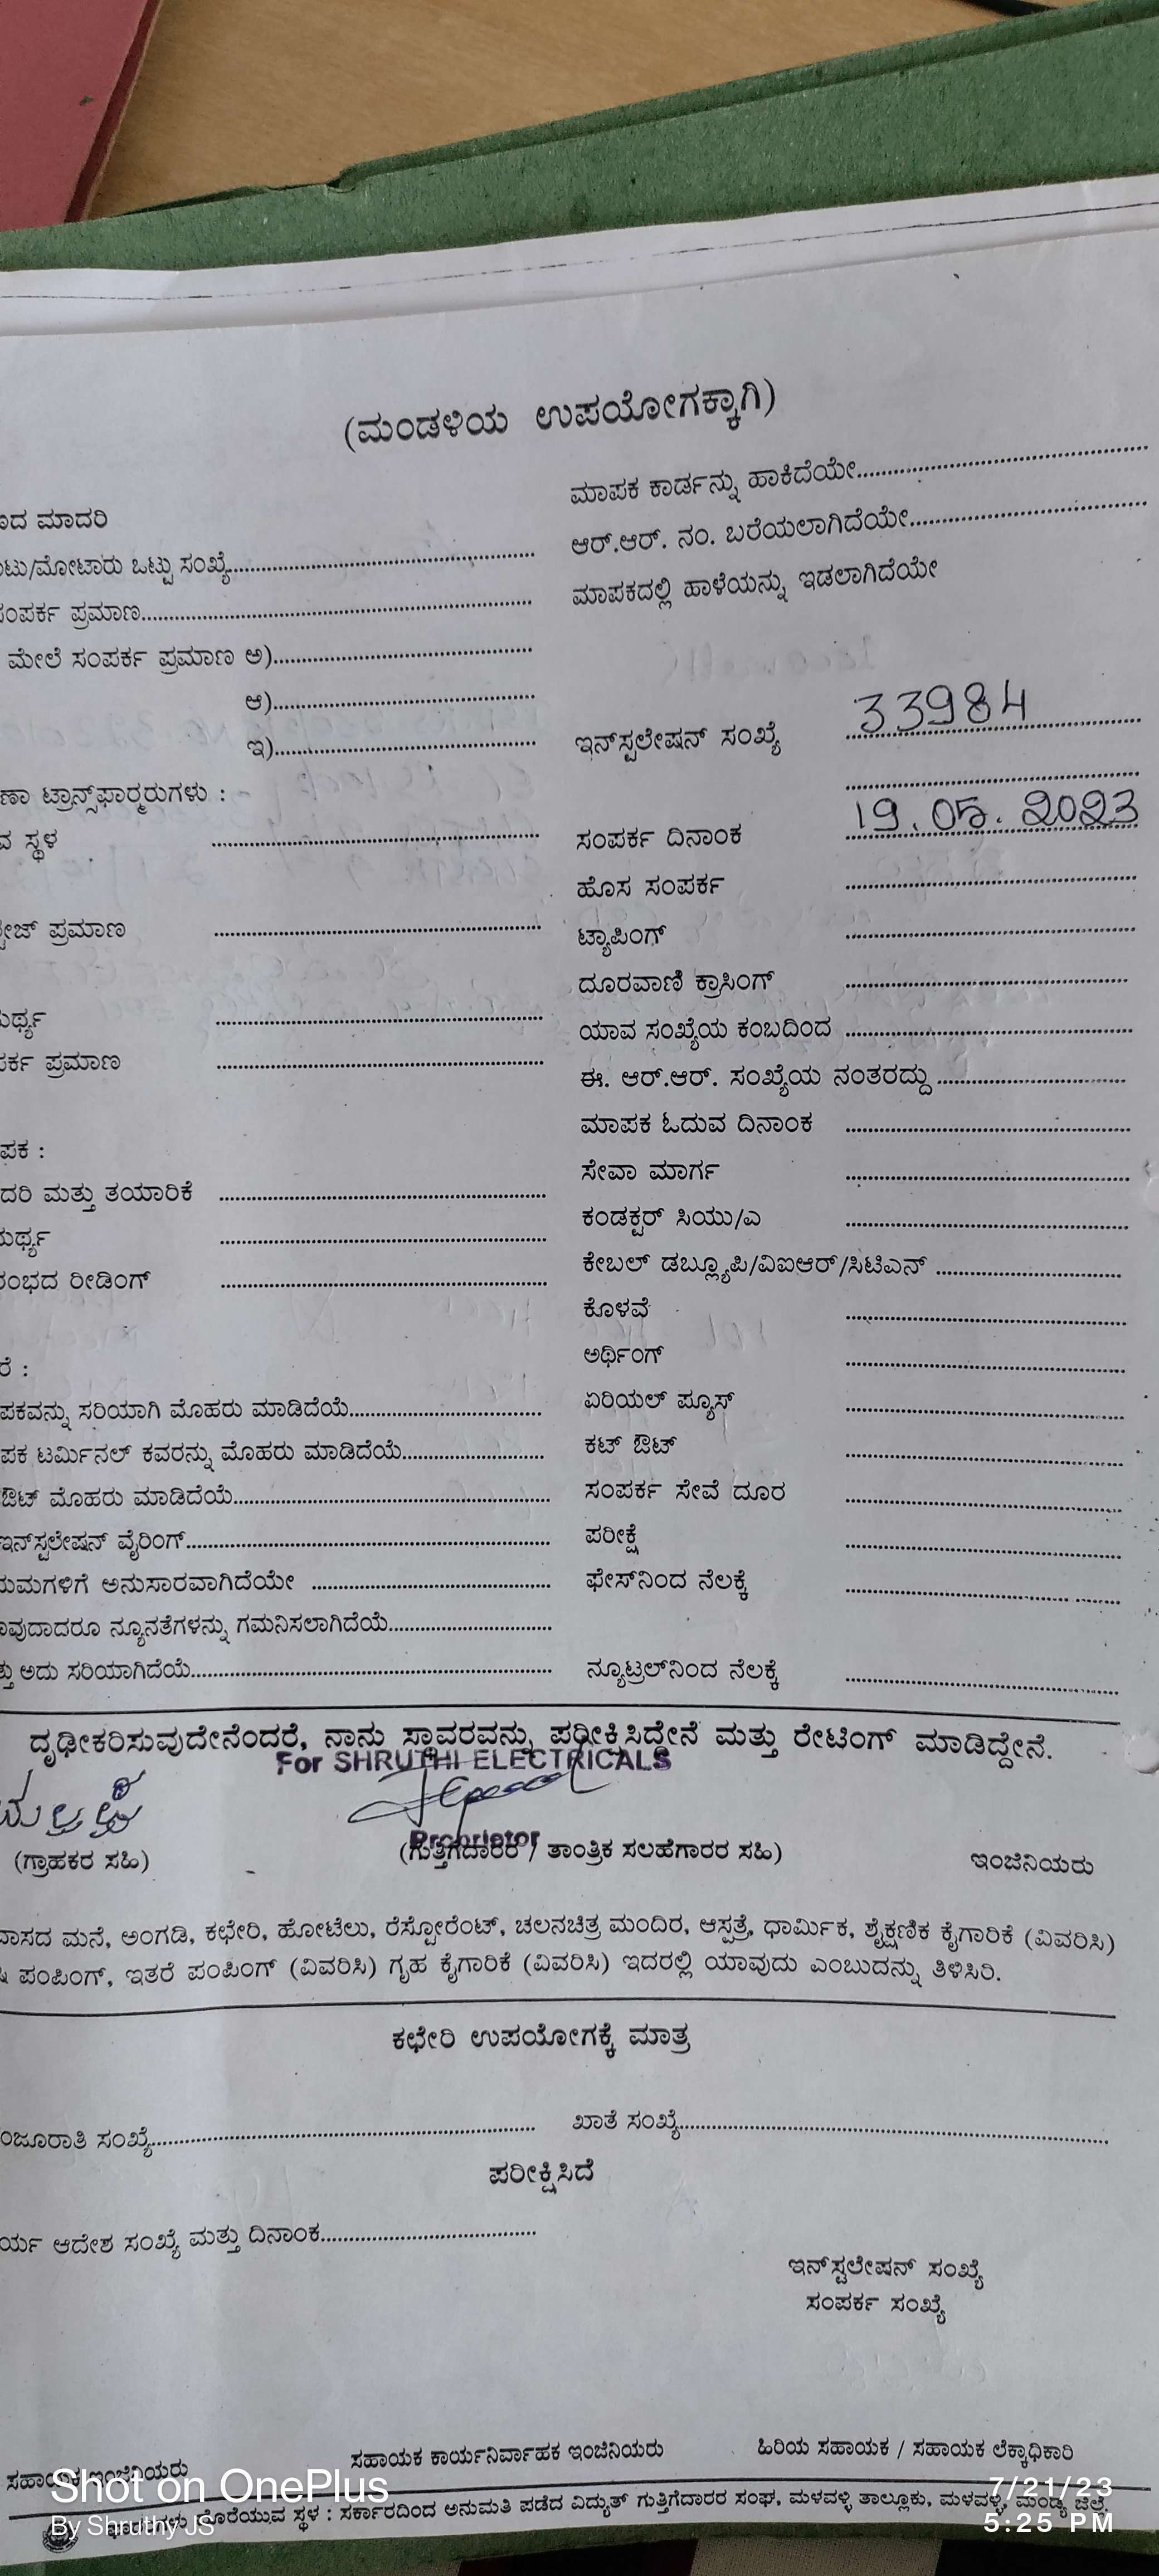 (ಮಂಡಳಿಯ ಉಪಯೋಗಕ್ಕಾಗಿ)
ಮಾದರಿ
ಒಟ್ಟು ಸಂಖ್ಯೆ
ಸಂಪರ್ಕ ಪ್ರಮಾಣ
ಮೇಲೆ ಸಂಪರ್ಕ ಪ್ರಮಾಣ ಅ)
ಆ)
ಇ)
ಟ್ರಾನ್ಸ್‌ಫಾರ್ಮರುಗಳು :
ಸ್ಥಳ
ಪ್ರಮಾಣ
ಪ್ರಮಾಣ
ಮತ್ತು ತಯಾರಿಕೆ
ರೀಡಿಂಗ್
ಸರಿಯಾಗಿ ಮೊಹರು ಮಾಡಿದೆಯೆ
ಟರ್ಮಿನಲ್ ಕವರನ್ನು ಮೊಹರು ಮಾಡಿದೆಯೆ
ಔಟ್ ಮೊಹರು ಮಾಡಿದೆಯೆ
ಇನ್‌ಸ್ಟಲೇಷನ್ ವೈರಿಂಗ್
ಅನುಸಾರವಾಗಿದೆಯೇ
ನ್ಯೂನತೆಗಳನ್ನು ಗಮನಿಸಲಾಗಿದೆಯೆ
ಅದು ಸರಿಯಾಗಿದೆಯೆ
ಮಾಪಕ ಕಾರ್ಡನ್ನು ಹಾಕಿದೆಯೇ
ಆರ್.ಆರ್. ನಂ. ಬರೆಯಲಾಗಿದೆಯೇ
ಮಾಪಕದಲ್ಲಿ ಹಾಳೆಯನ್ನು ಇಡಲಾಗಿದೆಯೇ
ಇನ್‌ಸ್ಟಲೇಷನ್ ಸಂಖ್ಯೆ 33984
ಸಂಪರ್ಕ ದಿನಾಂಕ 19.05.2023
ಹೊಸ ಸಂಪರ್ಕ
ಟ್ಯಾಪಿಂಗ್
ದೂರವಾಣಿ ಕ್ರಾಸಿಂಗ್
ಯಾವ ಸಂಖ್ಯೆಯ ಕಂಬದಿಂದ
ಈ. ಆರ್.ಆರ್. ಸಂಖ್ಯೆಯ ನಂತರದ್ದು
ಮಾಪಕ ಓದುವ ದಿನಾಂಕ
ಸೇವಾ ಮಾರ್ಗ
ಕಂಡಕ್ಟರ್ ಸಿಯು/ಎ
ಕೇಬಲ್ ಡಬ್ಲ್ಯೂಪಿ/ವಿಐಆರ್/ಸಿಟಿಎನ್
ಕೊಳವೆ
ಅರ್ಥಿಂಗ್
ಏರಿಯಲ್ ಫ್ಯೂಸ್
ಕಟ್ ಔಟ್
ಸಂಪರ್ಕ ಸೇವೆ ದೂರ
ಪರೀಕ್ಷೆ
ಫೇಸ್‌ನಿಂದ ನೆಲಕ್ಕೆ
ನ್ಯೂಟ್ರಲ್‌ನಿಂದ ನೆಲಕ್ಕೆ
ದೃಢೀಕರಿಸುವುದೇನೆಂದರೆ, ನಾನು ಸ್ಥಾವರವನ್ನು ಪರೀಕ್ಷಿಸಿದ್ದೇನೆ ಮತ್ತು ರೇಟಿಂಗ್ ಮಾಡಿದ್ದೇನೆ.
For SHRUTHI ELECTRICALS
Proprietor
(ಗ್ರಾಹಕರ ಸಹಿ) (ಗುತ್ತಿಗೆದಾರರ / ತಾಂತ್ರಿಕ ಸಲಹೆಗಾರರ ಸಹಿ) ಇಂಜಿನಿಯರು
ಮನೆ, ಅಂಗಡಿ, ಕಛೇರಿ, ಹೋಟೆಲು, ರೆಸ್ಟೋರೆಂಟ್, ಚಲನಚಿತ್ರ ಮಂದಿರ, ಆಸ್ಪತ್ರೆ, ಧಾರ್ಮಿಕ, ಶೈಕ್ಷಣಿಕ ಕೈಗಾರಿಕೆ (ವಿವರಿಸಿ)
ಪಂಪಿಂಗ್, ಇತರೆ ಪಂಪಿಂಗ್ (ವಿವರಿಸಿ) ಗೃಹ ಕೈಗಾರಿಕೆ (ವಿವರಿಸಿ) ಇದರಲ್ಲಿ ಯಾವುದು ಎಂಬುದನ್ನು ತಿಳಿಸಿರಿ.
ಕಛೇರಿ ಉಪಯೋಗಕ್ಕೆ ಮಾತ್ರ
ಸಂಖ್ಯೆ ಖಾತೆ ಸಂಖ್ಯೆ
ಪರೀಕ್ಷಿಸಿದೆ
ಆದೇಶ ಸಂಖ್ಯೆ ಮತ್ತು ದಿನಾಂಕ
ಇನ್‌ಸ್ಟಲೇಷನ್ ಸಂಖ್ಯೆ
ಸಂಪರ್ಕ ಸಂಖ್ಯೆ
ಸಹಾಯಕ ಇಂಜಿನಿಯರು ಸಹಾಯಕ ಕಾರ್ಯನಿರ್ವಾಹಕ ಇಂಜಿನಿಯರು ಹಿರಿಯ ಸಹಾಯಕ / ಸಹಾಯಕ ಲೆಕ್ಕಾಧಿಕಾರಿ
ದೊರೆಯುವ ಸ್ಥಳ : ಸರ್ಕಾರದಿಂದ ಅನುಮತಿ ಪಡೆದ ವಿದ್ಯುತ್ ಗುತ್ತಿಗೆದಾರರ ಸಂಘ, ಮಳವಳ್ಳಿ ತಾಲ್ಲೂಕು, ಮಳವಳ್ಳಿ, ಮಂಡ್ಯ ಜಿಲ್ಲೆ.
Shot on OnePlus
By Shruthy JS
7/21/23
5:25 PM